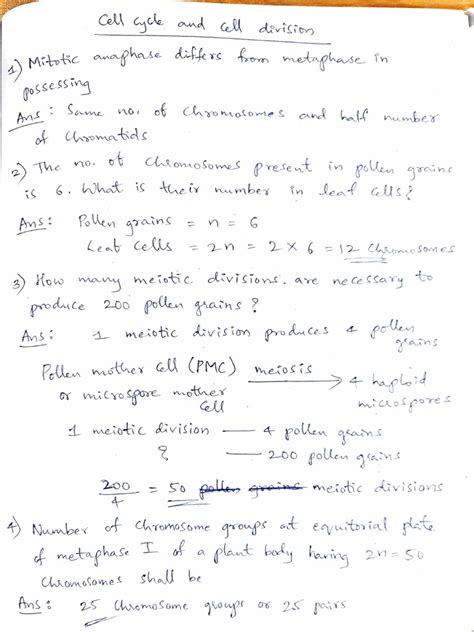 Cell Cycle and Cell division
1) Mitotic anaphase differs from metaphase in
possessing
Ans : Same no. of Chromosomes and half number
of Chromatids
2) The no. of Chromosomes present in pollen grains
is 6. What is their number in leaf cells?
Ans : Pollen grains = n = 6
Leaf Cells = 2n = 2 x 6 = 12 Chromosomes
3) How many meiotic divisions. are necessary to
produce 200 pollen grains ?
Ans : 1 meiotic division produces 4 pollen
grains
Pollen mother Cell (PMC) meiosis → 4 haploid
or microspore mother microspores
Cell
1 meiotic division — 4 pollen grains
? — 200 pollen grains
200/4 = 50 pollen grains meiotic divisions
4) Number of Chromosome groups at equitorial plate
of metaphase I of a plant body having 2n = 50
Chromosomes shall be
Ans : 25 Chromosome groups or 25 pairs